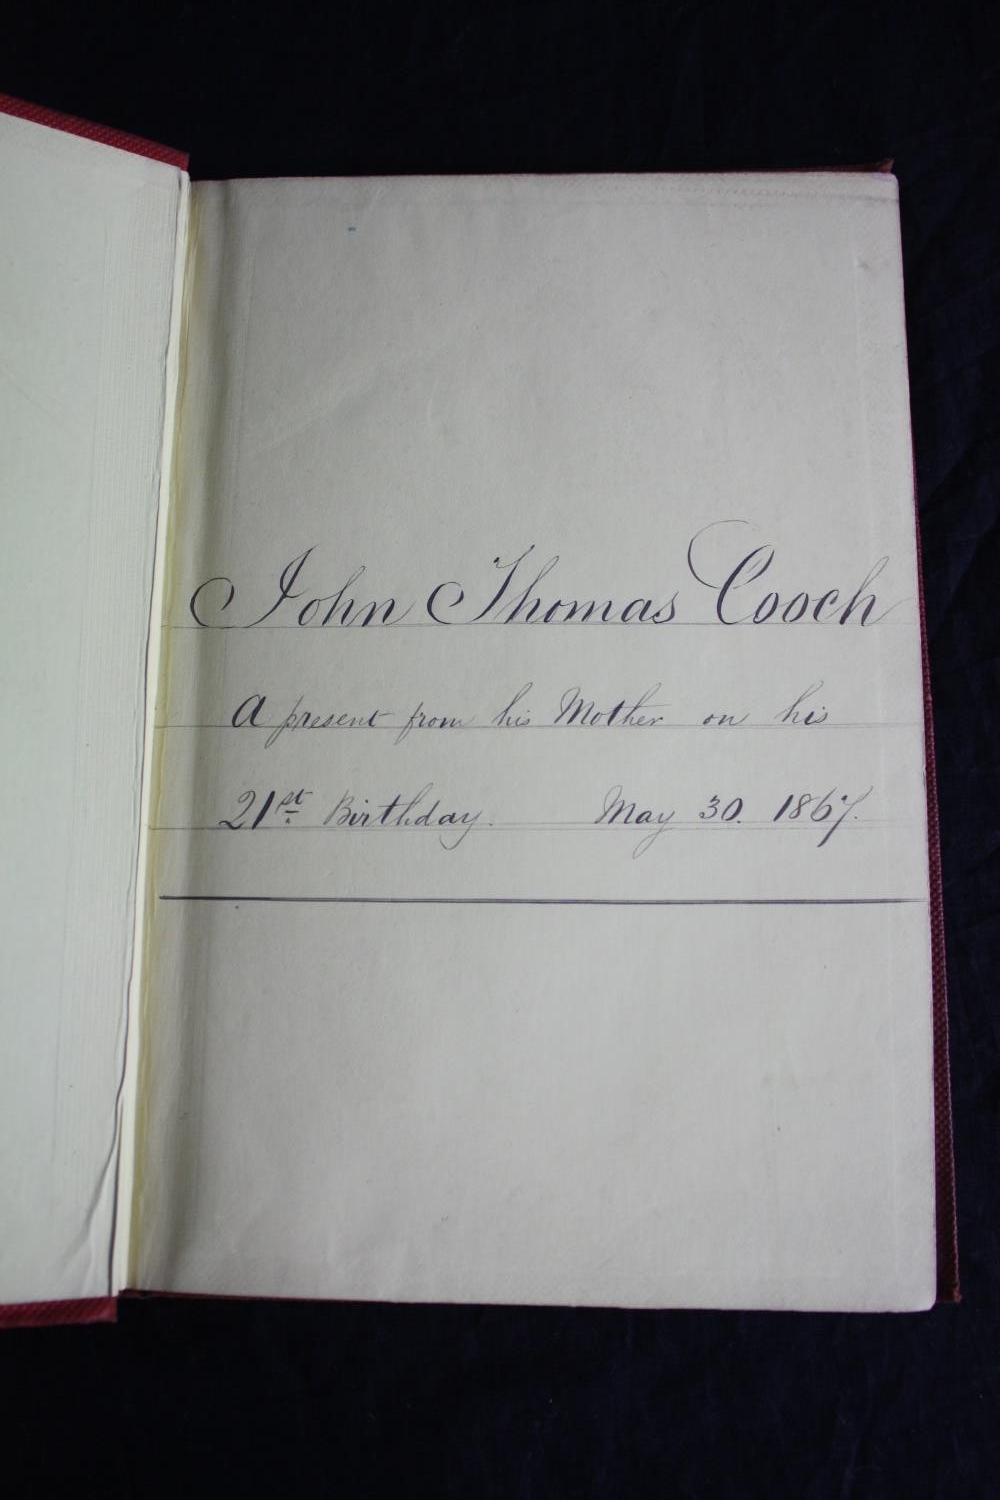 John Thomas Cooch
A present from his Mother on his
21st Birthday. May 30. 1867.